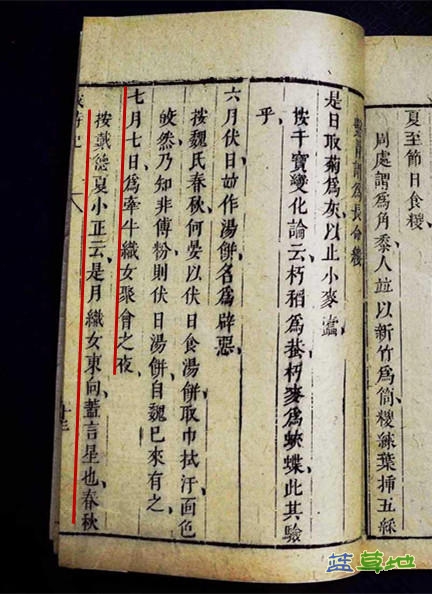 夏至節日食糭
周處謂為角黍人並以新竹為筒糭練葉插五綵
是日取菊為灰以止小麥蠹
按干寶變化論云朽稻為䖝朽麥為蛺蝶此其驗
乎
六月伏日並作湯餅名為辟惡
按魏氏春秋何晏以伏日食湯餅取巾拭汗面色
皎然乃知非傅粉則伏日湯餅自魏已來有之
七月七日為牽牛織女聚會之夜
按戴德夏小正云是月織女東向蓋言星也春秋
藍草地